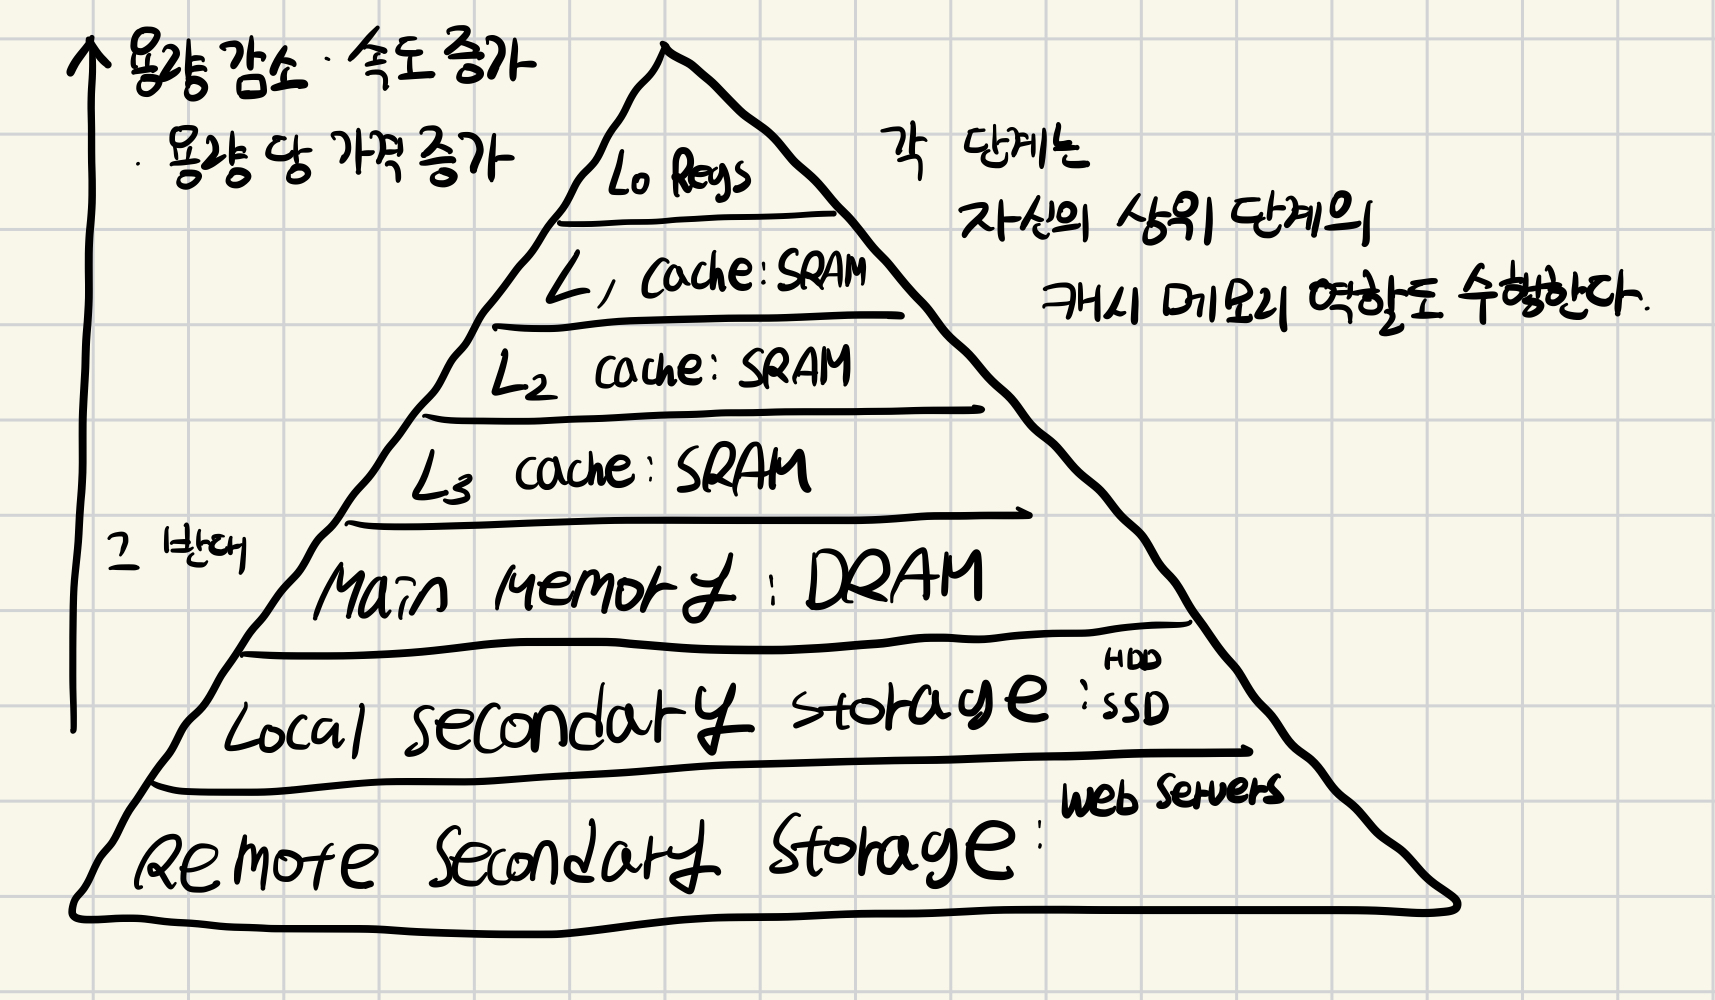 용량 감소 · 속도 증가
· 용량 당 가격 증가
각 단계는
자신의 상위 단계의
캐시 메모리 역할도 수행한다.
L0 Regs
L1 cache: SRAM
L2 cache: SRAM
L3 cache: SRAM
그 반대
Main Memory : DRAM
Local secondary storage : HDD
SSD
Remote Secondary Storage : Web Servers